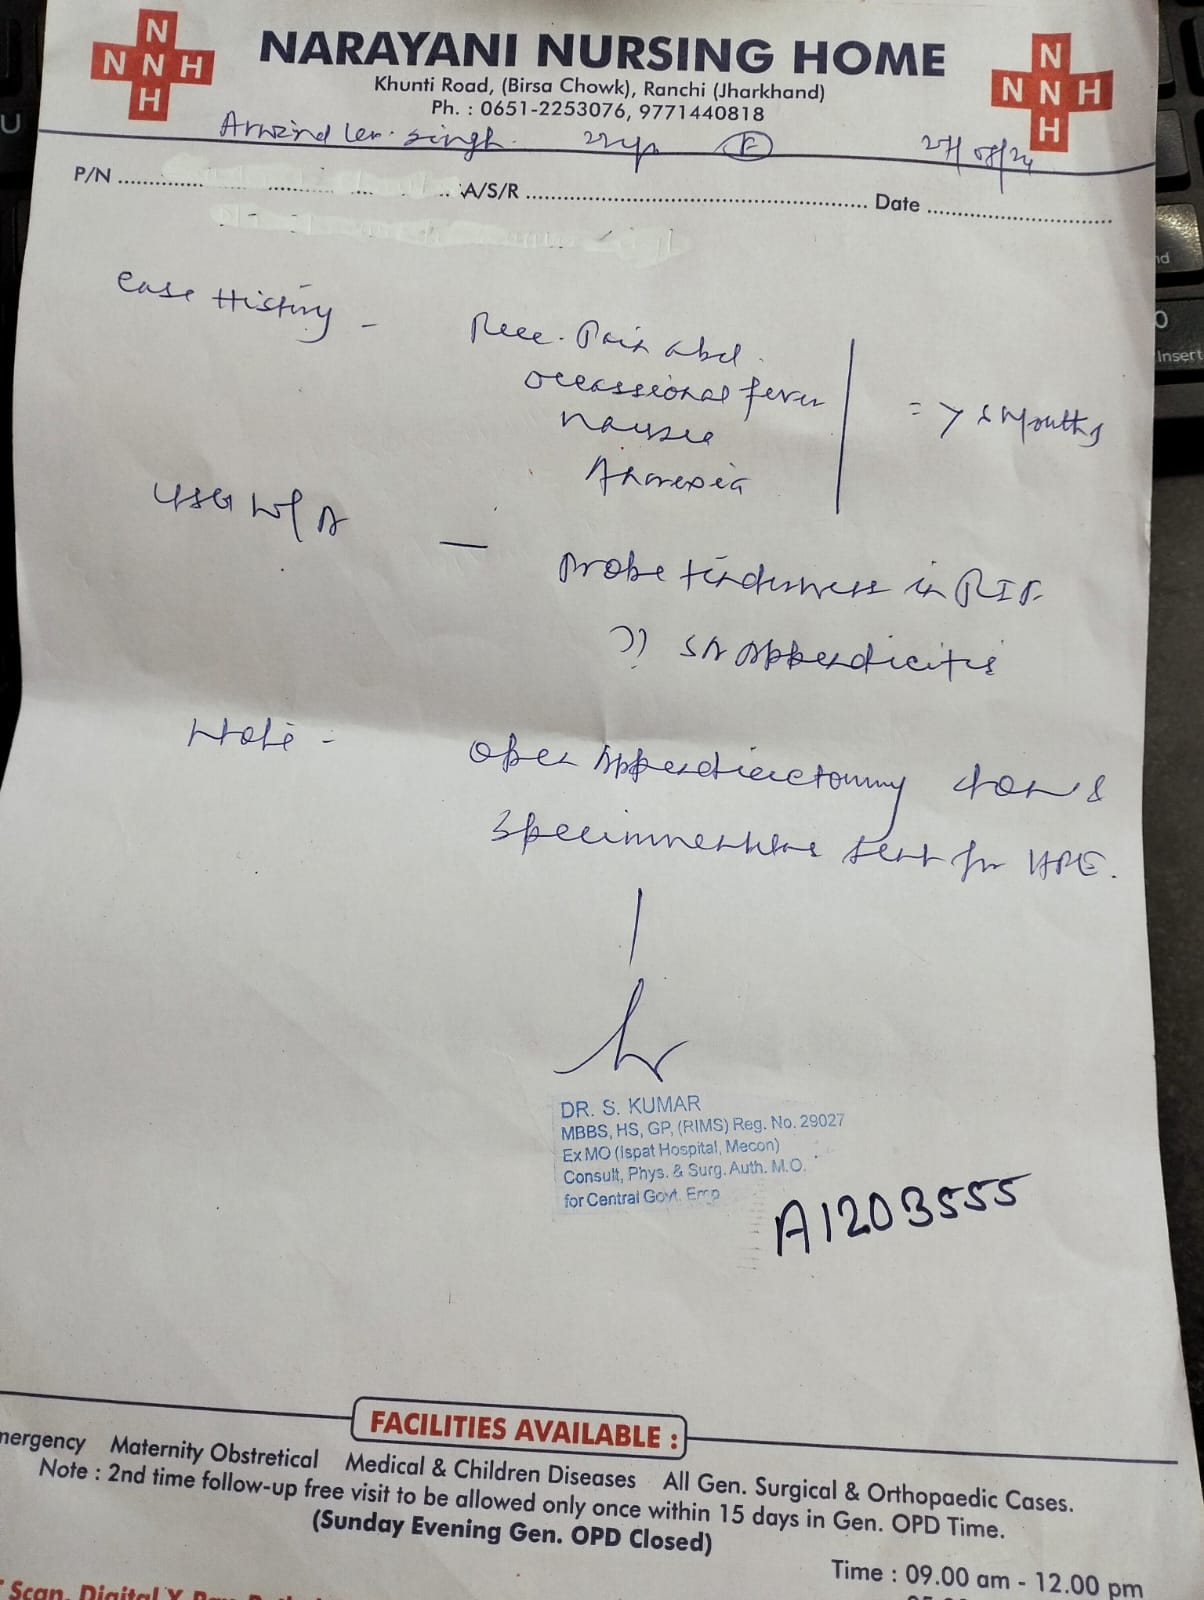 N
N N H
H
NARAYANI NURSING HOME
Khunti Road, (Birsa Chowk), Ranchi (Jharkhand)
Ph. : 0651-2253076, 9771440818
N
N N H
H
Arwind kr. Singh 22y 27/08/24
P/N A/S/R Date
Case History -
Rec. Pain abd.
occassional fever
nausea
Anorexia
Months
USG W/A -
Probe tenderness in RIF.
?? SA Appendicitis
Note -
Open Appendicectomy done &
sent for HPE.
DR. S. KUMAR
MBBS, HS, GP, (RIMS) Reg. No. 29027
Ex MO (Ispat Hospital, Mecon)
Consult, Phys. & Surg. Auth. M.O.
for Central Govt. Emp
A1203555
FACILITIES AVAILABLE :
mergency Maternity Obstretical Medical & Children Diseases All Gen. Surgical & Orthopaedic Cases.
Note : 2nd time follow-up free visit to be allowed only once within 15 days in Gen. OPD Time.
(Sunday Evening Gen. OPD Closed)
Time : 09.00 am - 12.00 pm
Scan, Digital X
U
Insert